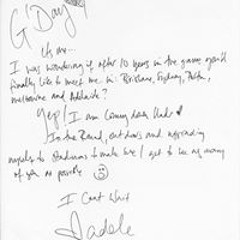 G'Day
Its me...
I was wondering if after 10 years in the games you'd
finally like to meet me in: Brisbane, Sydney, Perth,
melbourne and Adelaide?
Yep! I am Coming down Under
In the Round, outdoors and upgrading
myself to Stadiums to make sure I get to see as many
of you as possible
I Can't Wait
Adele